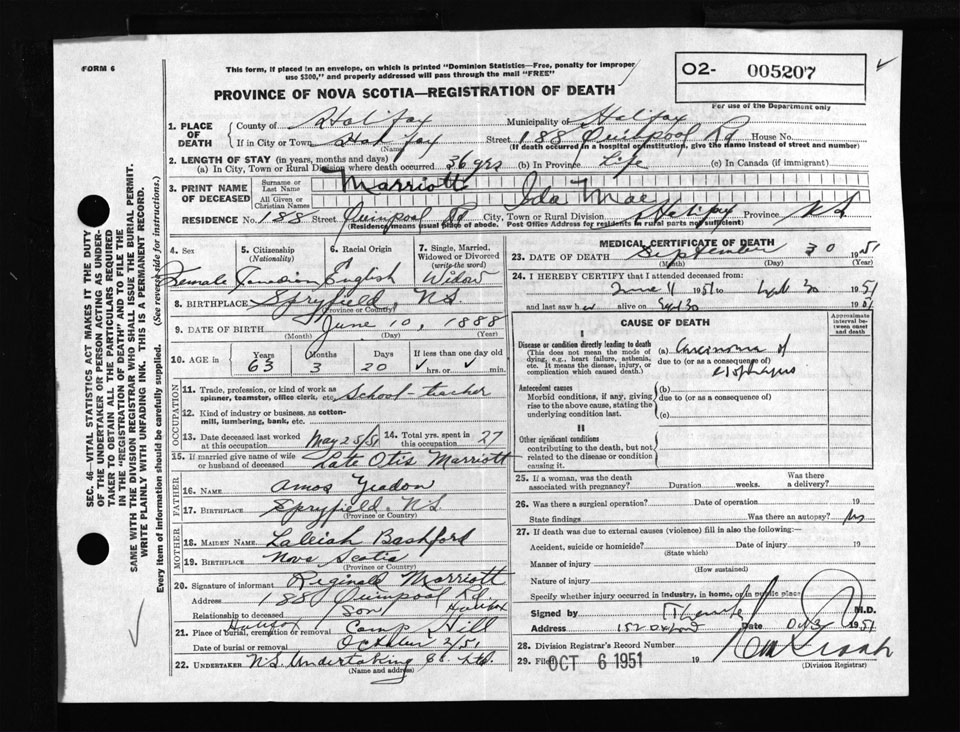 FORM 6
This form, if placed in an envelope, on which is printed "Dominion Statistics—Free, penalty for improper
use $300," and properly addressed will pass through the mail "FREE"
PROVINCE OF NOVA SCOTIA—REGISTRATION OF DEATH
O2- 005207
For use of the Department only
SEC. 46—VITAL STATISTICS ACT MAKES IT THE DUTY
OF THE UNDERTAKER OR PERSON ACTING AS UNDER-
TAKER TO OBTAIN ALL THE PARTICULARS REQUIRED
IN THE "REGISTRATION OF DEATH" AND TO FILE THE
SAME WITH THE DIVISION REGISTRAR WHO SHALL ISSUE THE BURIAL PERMIT.
WRITE PLAINLY WITH UNFADING INK. THIS IS A PERMANENT RECORD.
Every item of information should be carefully supplied. (See reverse side for instructions.)
1. PLACE OF DEATH County of Halifax Municipality of Halifax
If in City or Town Halifax Street 188 Quinpool Rd House No.
(Name) (If death occurred in a hospital or institution, give the name instead of street and number)
2. LENGTH OF STAY (in years, months and days)
(a) In City, Town or Rural Division where death occurred 36 yrs (b) In Province Life (c) In Canada (if immigrant)
3. PRINT NAME OF DECEASED Surname or Last Name Marriott
All Given or Christian Names Ida Mae
RESIDENCE No. 188 Street Quinpool Rd City, Town or Rural Division Halifax Province NS
(Residence means usual place of abode. Post Office Address for residents in rural parts not sufficient)
4. Sex 5. Citizenship (Nationality) 6. Racial Origin 7. Single, Married, Widowed or Divorced (write the word)
Female Canadian English Widow
8. BIRTHPLACE Spryfield, N.S.
(Province or Country)
9. DATE OF BIRTH June 10, 1888
(Month) (Day) (Year)
10. AGE in Years Months Days If less than one day old
63 3 20 hrs. or min.
OCCUPATION
11. Trade, profession, or kind of work as
spinner, teamster, office clerk, etc. School-teacher
12. Kind of industry or business, as cotton-
mill, lumbering, bank, etc.
13. Date deceased last worked at this occupation May 25/51 14. Total yrs. spent in this occupation 27
15. If married give name of wife or husband of deceased Late Otis Marriott
FATHER
16. NAME Amos Yeadon
17. BIRTHPLACE Spryfield, N.S.
(Province or Country)
MOTHER
18. MAIDEN NAME Laleiah Bashford
19. BIRTHPLACE Nova Scotia
(Province or Country)
20. Signature of informant Reginald Marriott
Address 188 Quinpool Rd. Halifax
Relationship to deceased Son
21. Place of burial, cremation or removal Halifax Camp Hill
Date of burial or removal October 2/51
22. UNDERTAKER N.S. Undertaking Co. Ltd.
(Name and address)
MEDICAL CERTIFICATE OF DEATH
23. DATE OF DEATH September 30 1951
(Month) (Day) (Year)
24. I HEREBY CERTIFY that I attended deceased from:
June 11 1951 to Sept 30 1951
and last saw her alive on Sept 30 1951
CAUSE OF DEATH
Approximate interval between onset and death
I
Disease or condition directly leading to death (a) Carcinoma of
(This does not mean the mode of due to (or as a consequence of)
dying, e.g., heart failure, asthenia, Esophagus
etc. It means the disease, injury, or
complication which caused death.)
Antecedent causes (b)
Morbid conditions, if any, giving due to (or as a consequence of)
rise to the above cause, stating the
underlying condition last. (c)
II
Other significant conditions
contributing to the death, but not
related to the disease or condition
causing it.
25. If a woman, was the death associated with pregnancy? Duration weeks. Was there a delivery?
26. Was there a surgical operation? Date of operation 19
State findings Was there an autopsy? No
27. If death was due to external causes (violence) fill in also the following:—
Accident, suicide or homicide? Date of injury 19
(State which)
Manner of injury
(How sustained)
Nature of injury
Specify whether injury occurred in industry, in home, or in public place
Signed by M.D.
Address 152 Oxford Date Oct 3 1951
28. Division Registrar's Record Number
29. Filed OCT 6 1951 19
(Division Registrar)